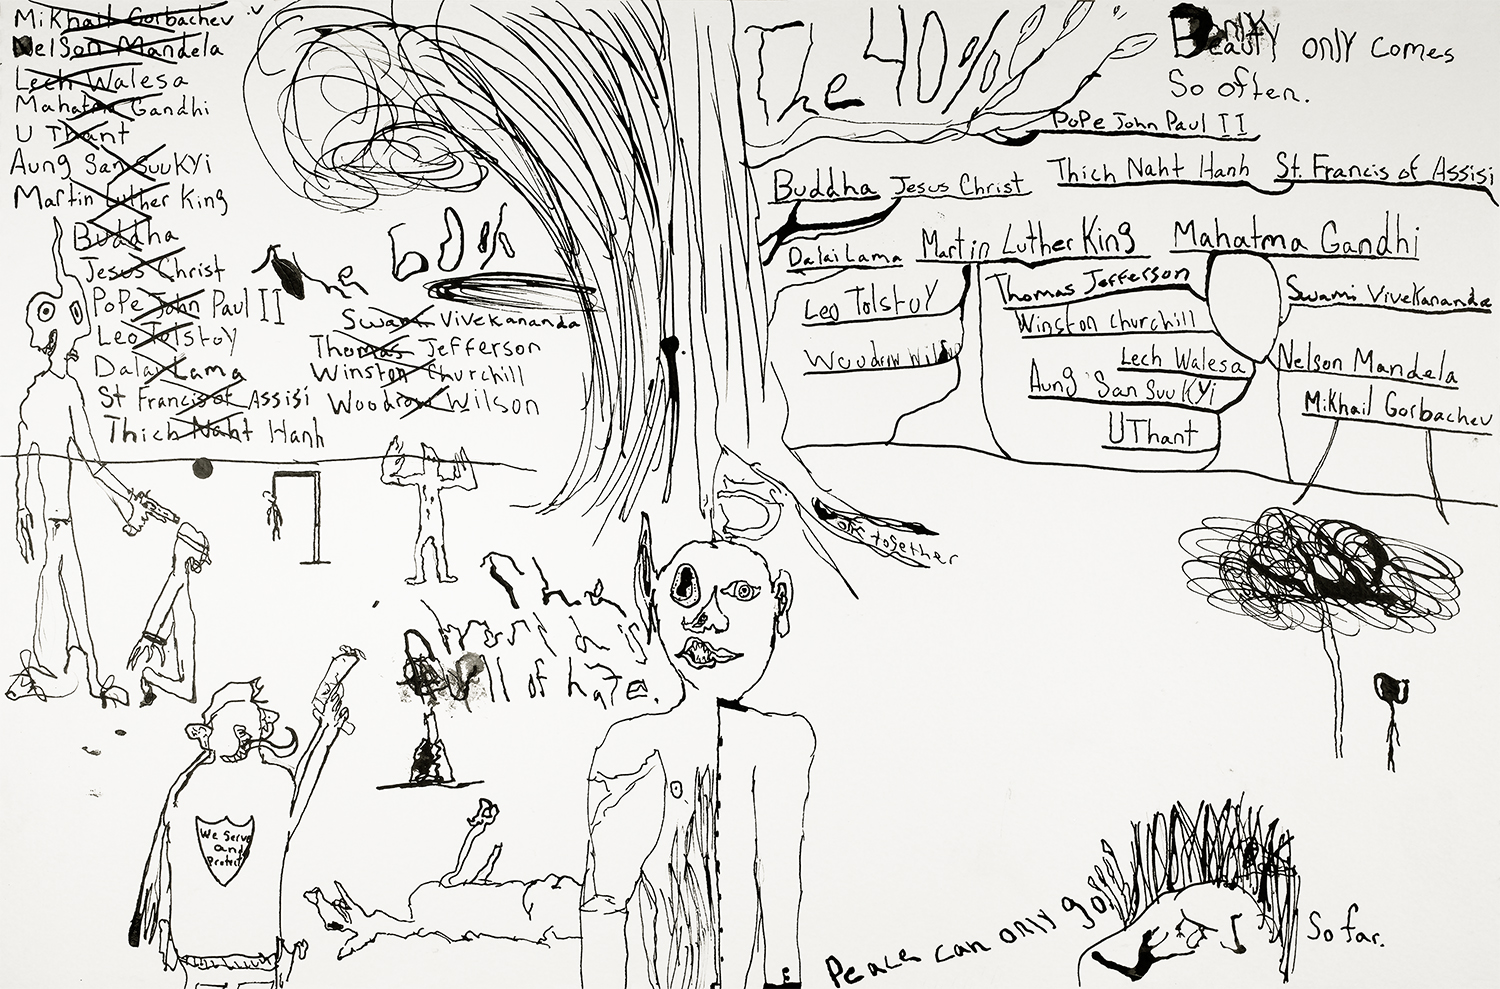 Mikhail Gorbachev
Nelson Mandela
Lech Walesa
Mahatma Gandhi
U Thant
Aung San Suu Kyi
Martin Luther King
Buddha
Jesus Christ
Pope John Paul II
Leo Tolstoy
Dalai Lama
St Francis of Assisi
Thich Naht Hanh
The 60%
Swami Vivekananda
Thomas Jefferson
Winston Churchill
Woodrow Wilson
The 40%
Beauty only comes
So often.
Pope John Paul II
Buddha Jesus Christ Thich Naht Hanh St. Francis of Assisi
Dalai Lama Martin Luther King Mahatma Gandhi
Leo Tolstoy Thomas Jefferson Swami Vivekananda
Winston Churchill
Woodrow Wilson Lech Walesa Nelson Mandela
Aung San Suu Kyi Mikhail Gorbachev
U Thant
together
The
is
full of hate.
We Serve
and
Protect
Peace can only go So far.